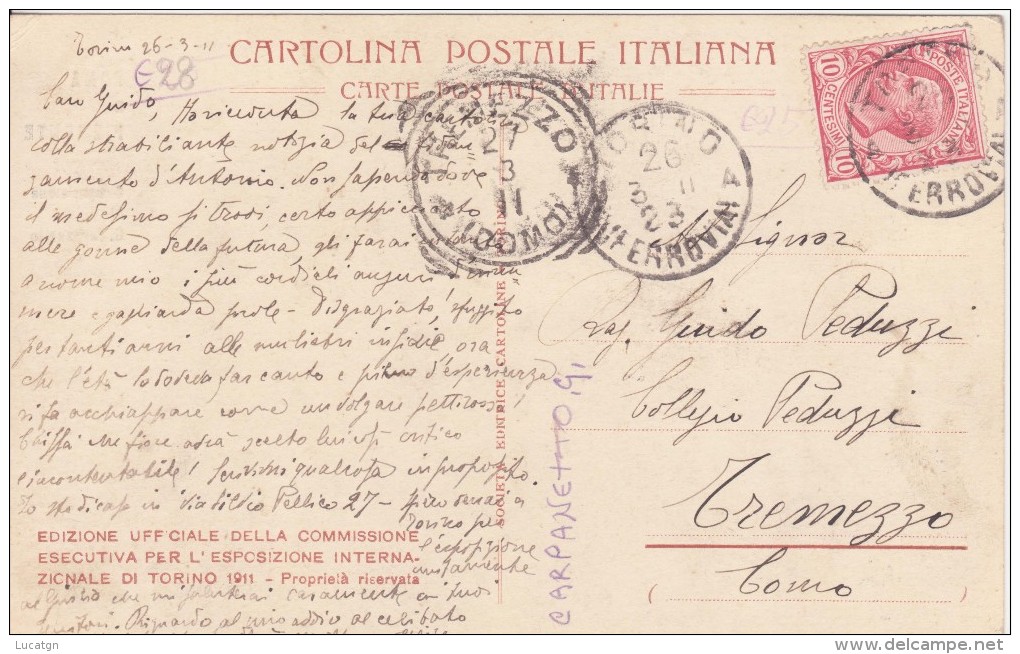 Torino 26-3-11
€28
CARTOLINA POSTALE ITALIANA
CARTE POSTALE D'ITALIE
10 POSTE ITALIANE
CENTESIMI 10
TREMEZZO
27
3
11
(COMO)
TORINO
26
3
11
FERROVIA
FERROVIA
Caro Guido, Ho ricevuta la tua cartolina
colla strabiliante notizia del fidan
zamento d'Antonio. Non sapendo dove
il medesimo si trovi, certo appiccicato
alle gonne della futura, gli farai
a nome mio i più cordiali auguri
e gagliarda prole. Disgraziato, sfuggito
per tanti anni alle muliebri insidie, ora
che l'età lo doveva far cauto e pieno d'esperienza
si fa acchiappare come un volgare pettirosso!
Chissà che fiore avrà scelto lui così critico
e incontentabile! Scrivimi qualcosa in proposito.
Io sto di casa in via Silvio Pellico 27 - spero verrai a
Torino per
l'esposizione
unitamente
al che mi saluterai caramente
Riguardo al mio addio al celibato
EDIZIONE UFFICIALE DELLA COMMISSIONE
ESECUTIVA PER L'ESPOSIZIONE INTERNA-
ZIONALE DI TORINO 1911 - Proprietà riservata
SOCIETÀ EDITRICE CARTOLINE TORINO
CARPANETTO, 91
Signor
Rag. Guido Peduzzi
Collegio Peduzzi
Tremezzo
( Como )
Lucatgn
delcampe.net